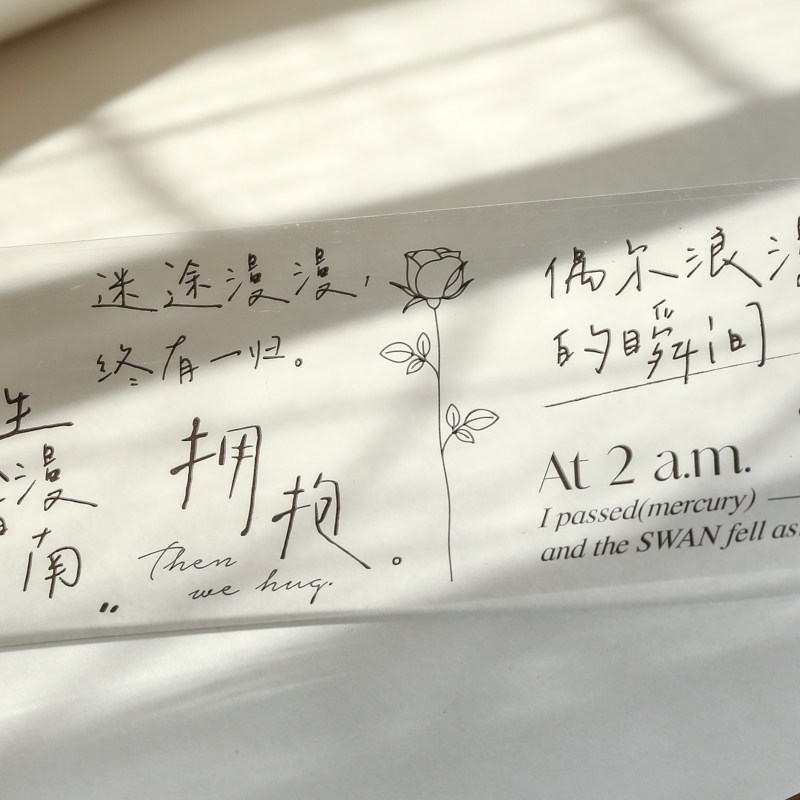 迷途漫漫，
终有一归。
生
漫
南
拥
抱。
Then
we hug.
偶尔浪漫
的瞬间
At 2 a.m.
I passed(mercury) —
and the SWAN fell as